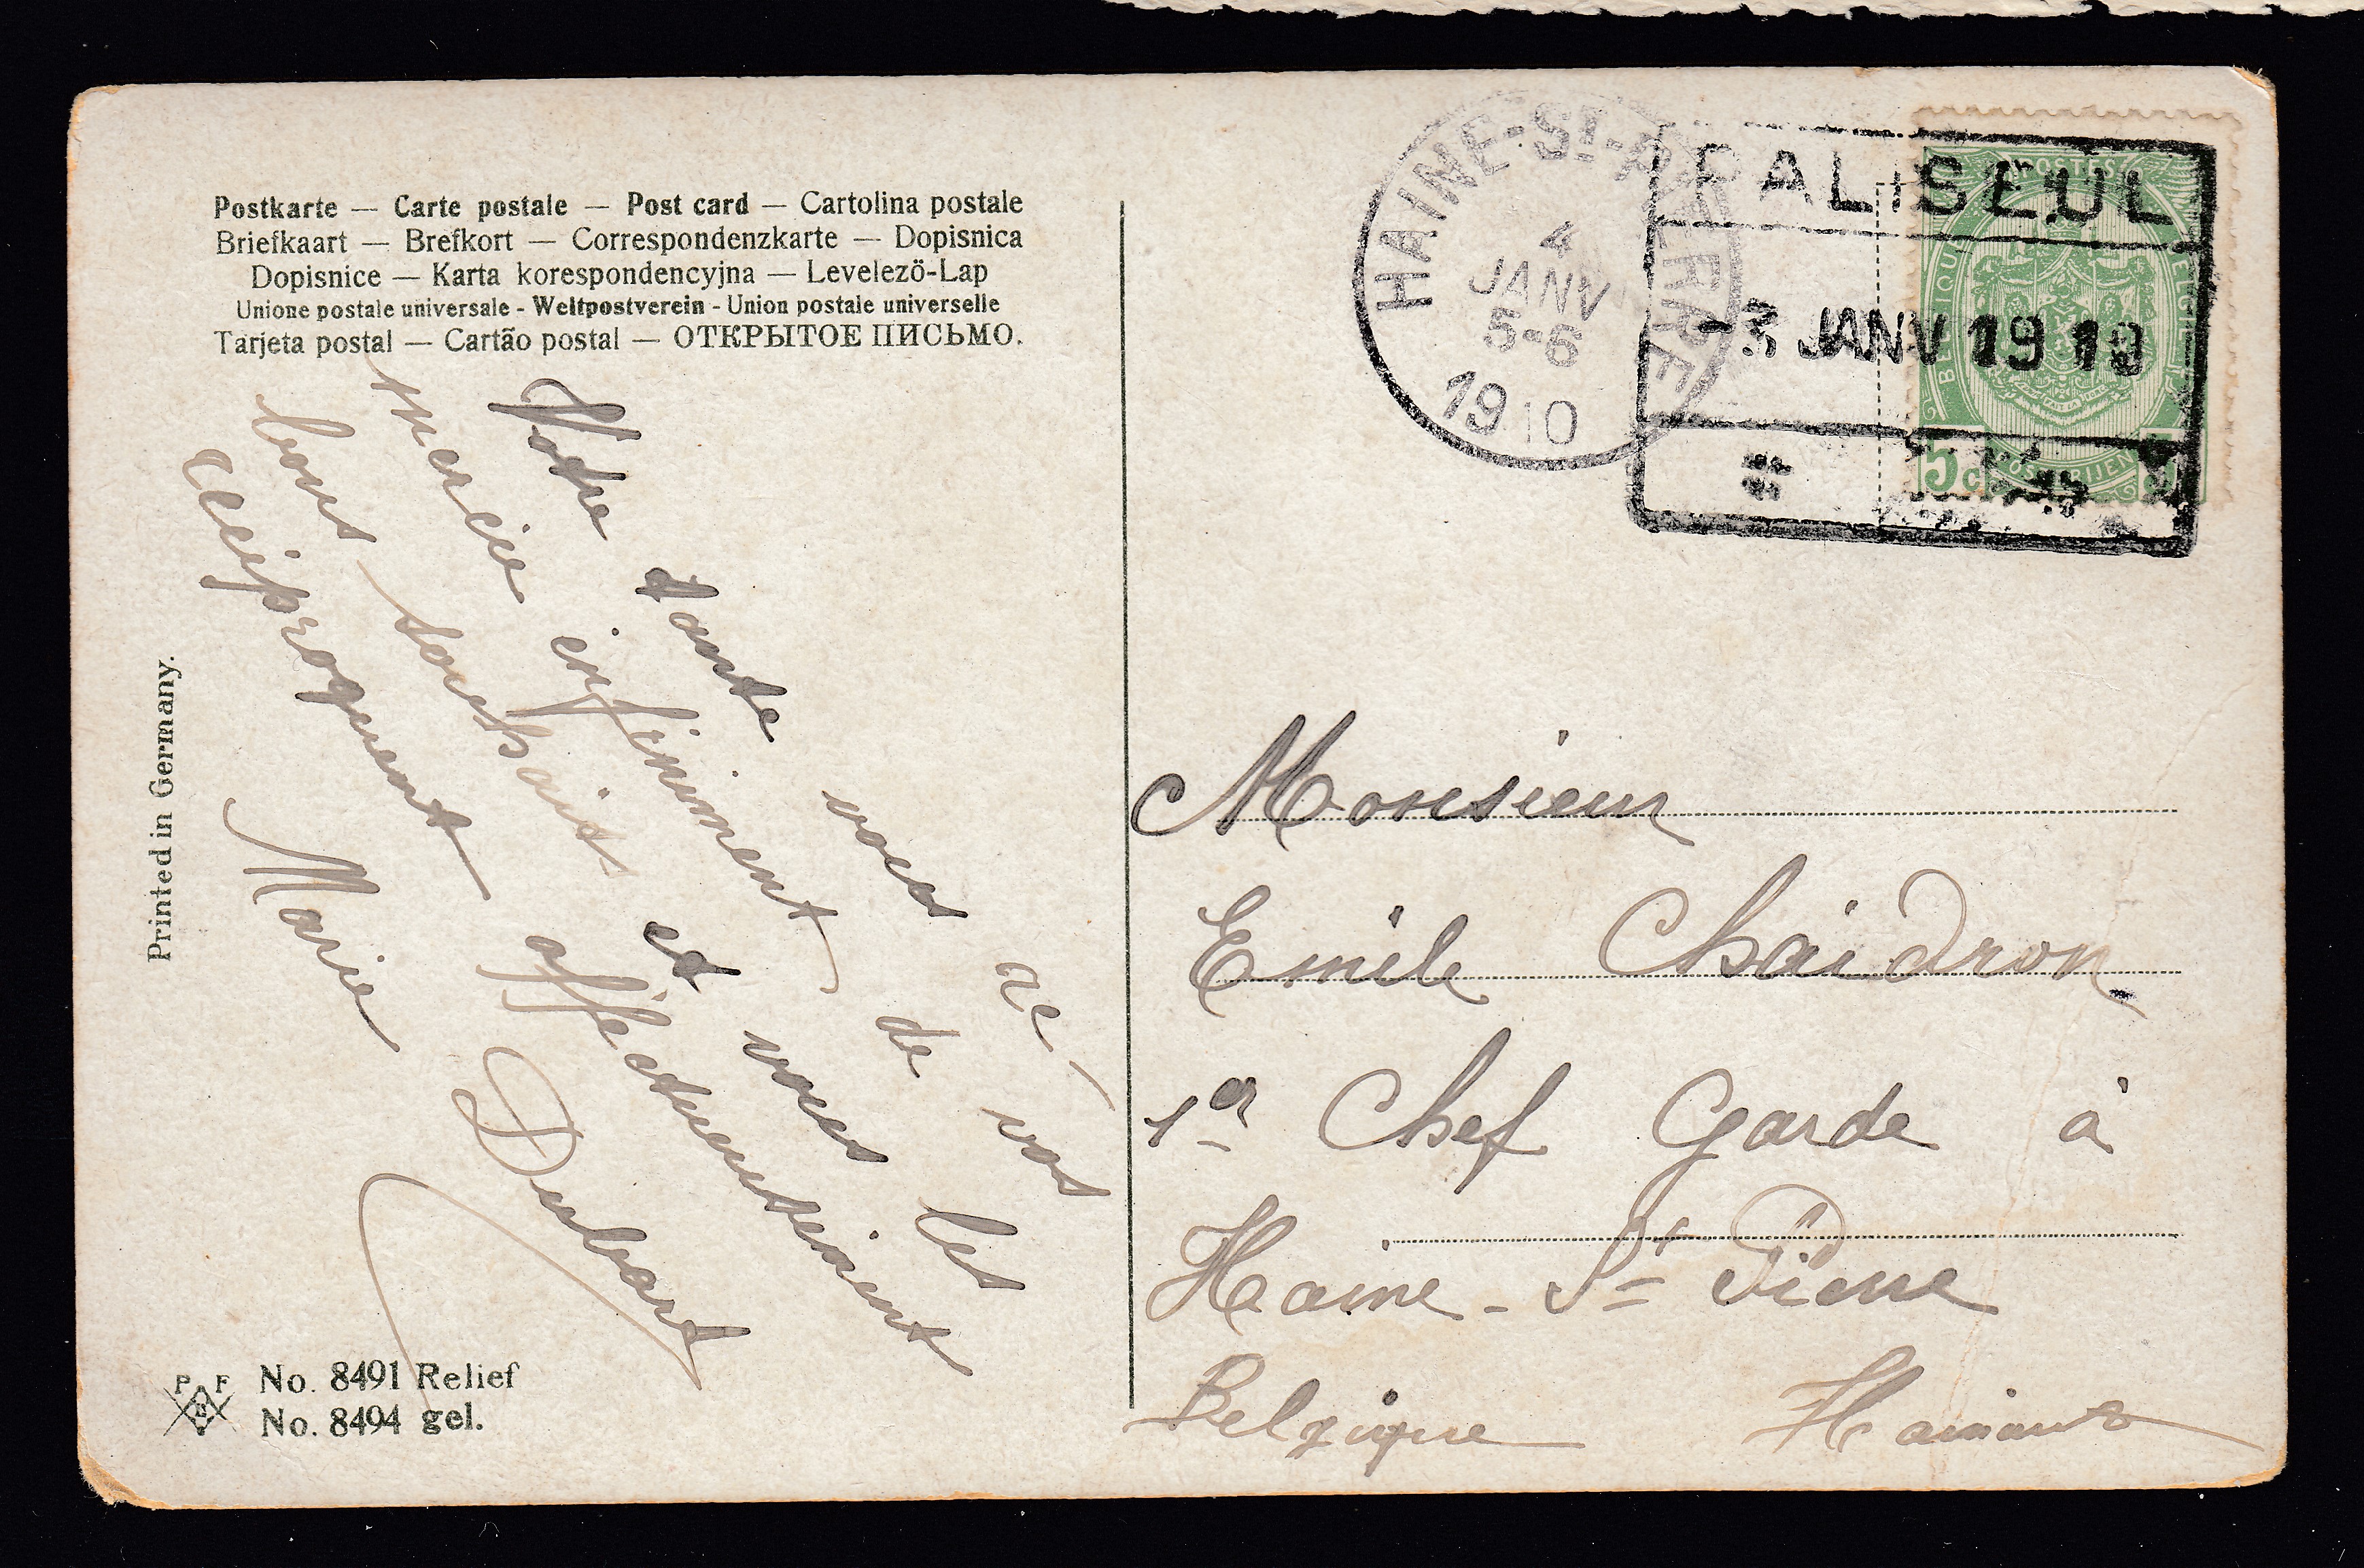 Postkarte — Carte postale — Post card — Cartolina postale
Briefkaart — Brefkort — Correspondenzkarte — Dopisnica
Dopisnice — Karta korespondencyjna — Levelező-Lap
Unione postale universale - Weltpostverein - Union postale universelle
Tarjeta postal — Cartão postal — ОТКРЫТОЕ ПИСЬМО.
Votre tante vous re-
mercie infiniment de vos
bons souhaits et vous les
réciproquent affectueusement
Marie Dubart
Printed in Germany.
P F B
No. 8491 Relief
No. 8494 gel.
HAINE-ST-PIERRE
4
JANV
5-6
1910
PALISEUL
-3 JANV 1910
POSTES
BELGIQUE
BELGIË
POSTERIJEN
5c 5
Monsieur
Emile Chaidron
1er Chef Garde à
Haine-St Pierre
Belgique Hainaut